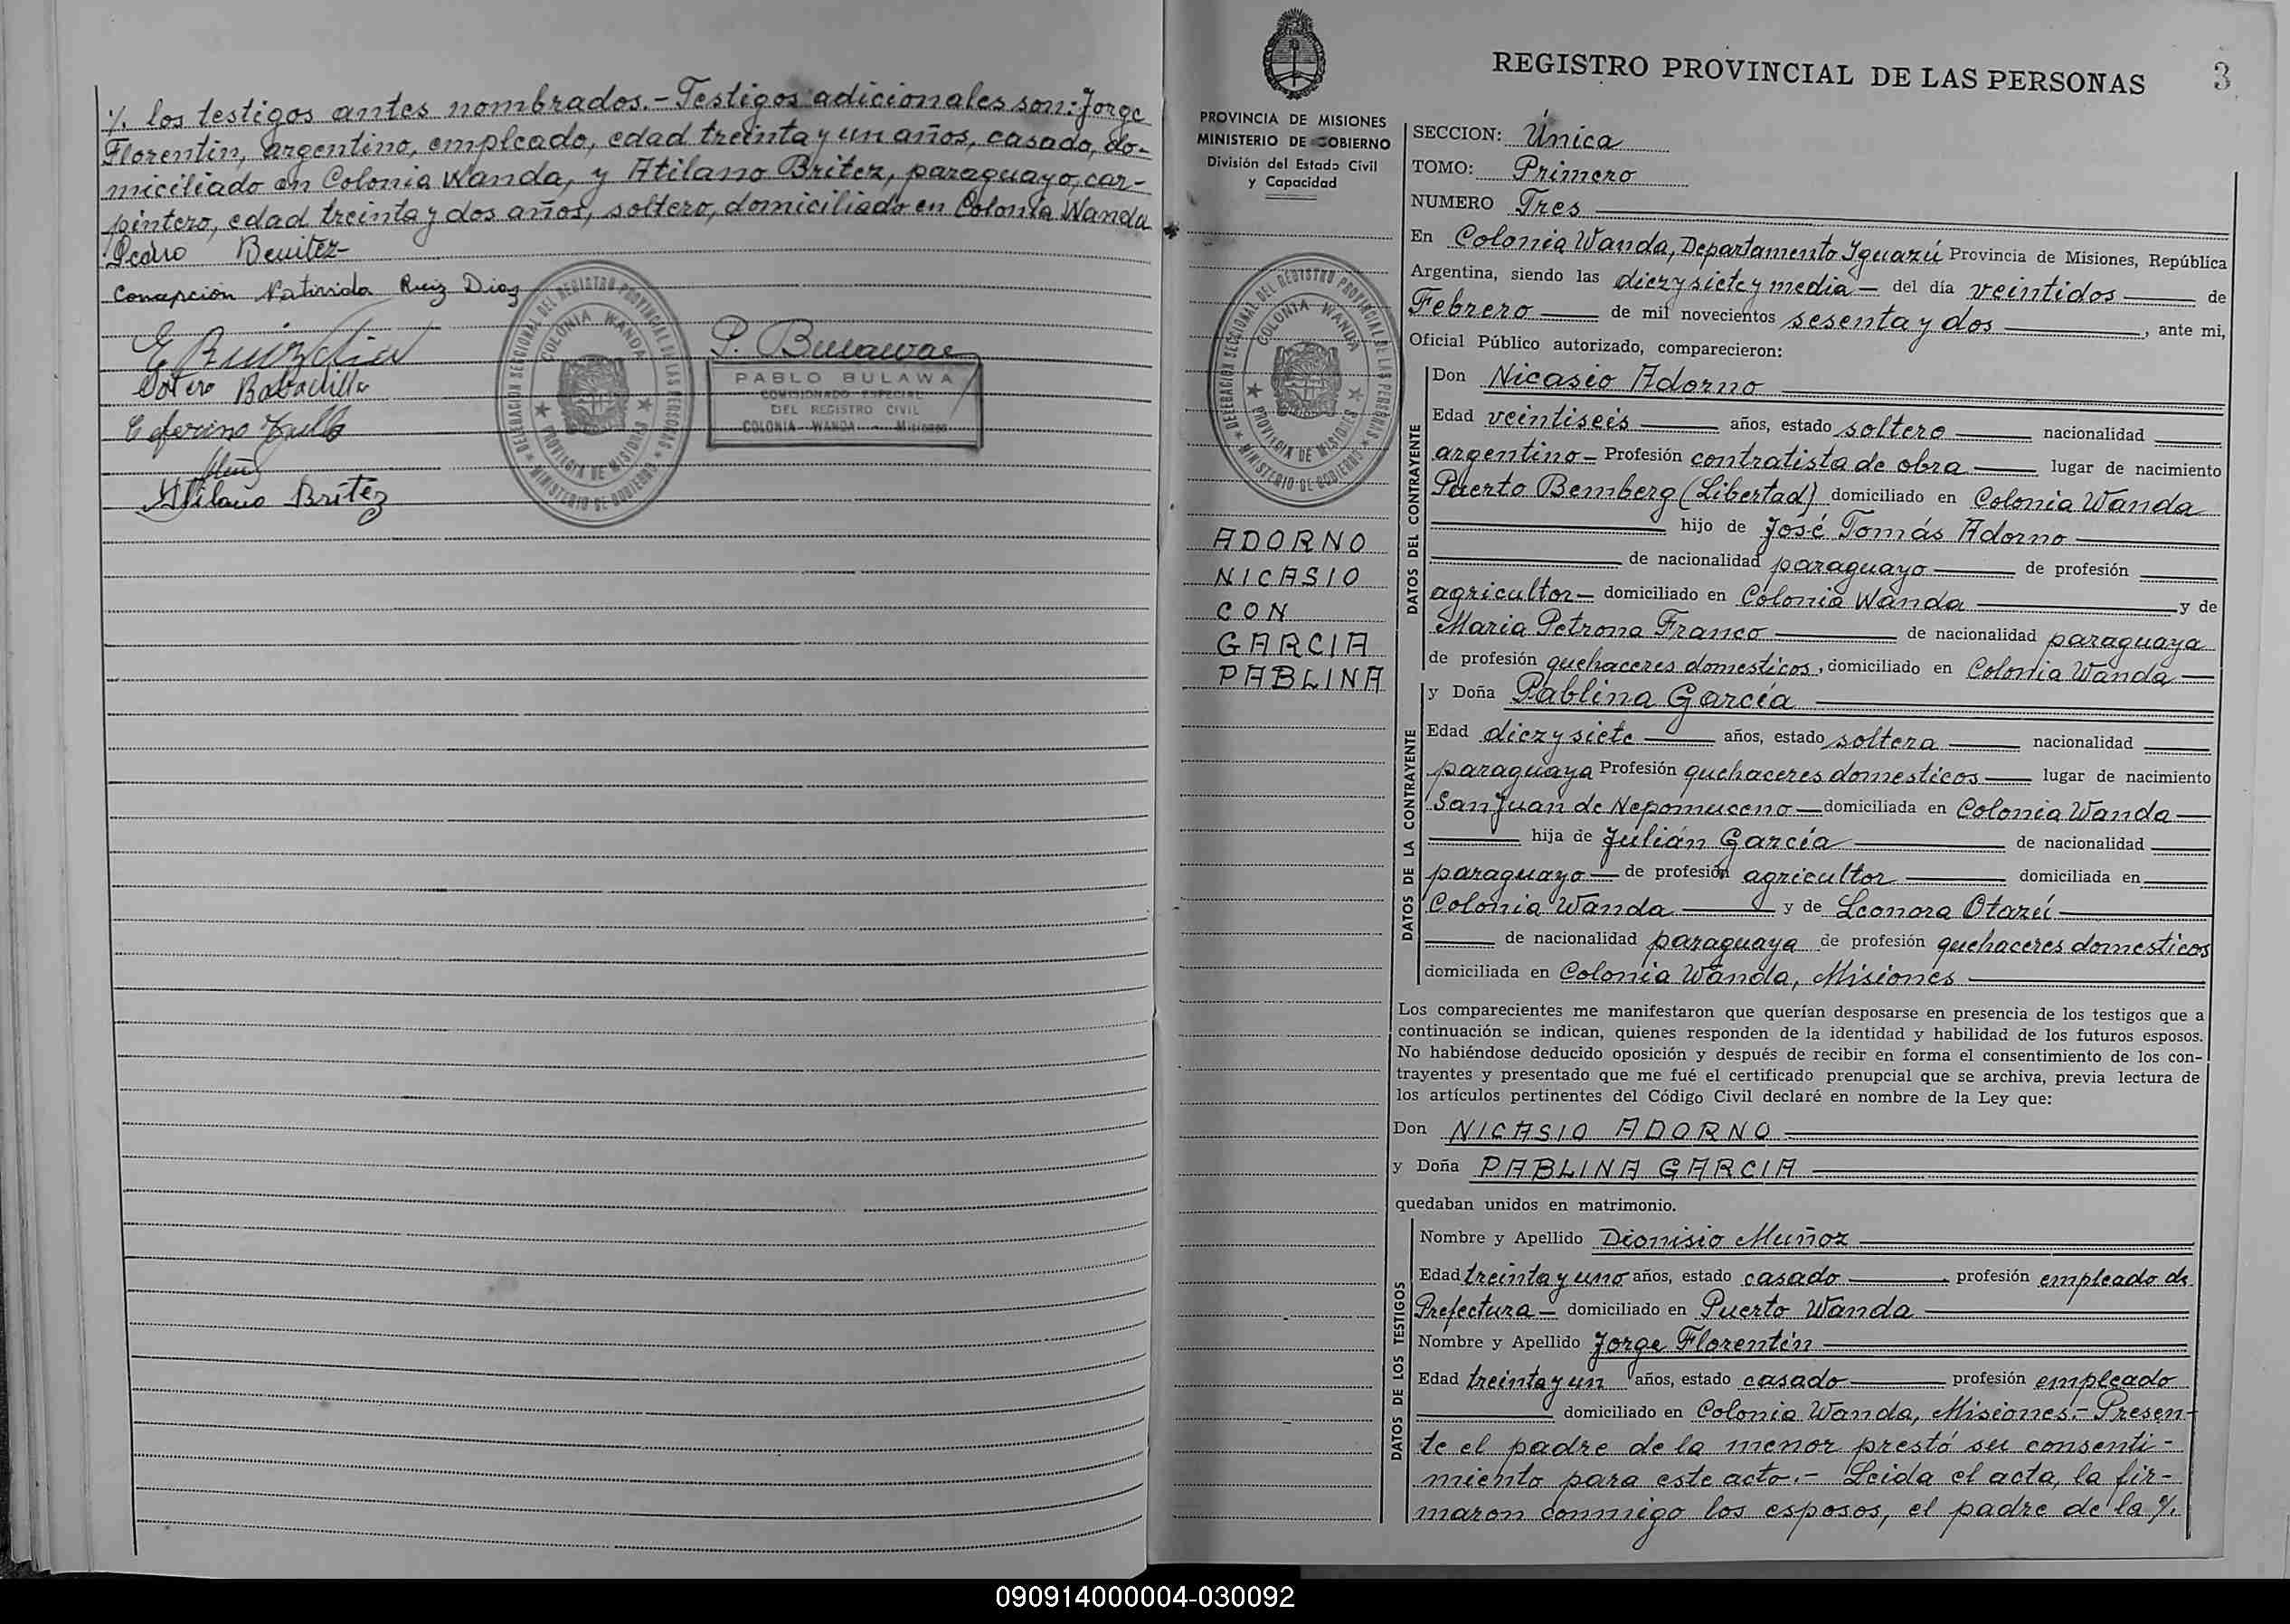 %. los testigos antes nombrados.- Testigos adicionales son: Jorge
Florentín, argentino, empleado, edad treinta y un años, casado, do-
miciliado en Colonia Wanda, y Atilano Britez, paraguayo, car-
pintero, edad treinta y dos años, soltero, domiciliado en Colonia Wanda
Pedro Benitez
Concepción Natirida Ruiz Diaz
E Ruizdiaz
Sotero Bobadilla
Ceferino
Atilano Britez
DELEGACION SECCIONAL DEL REGISTRO PROVINCIAL DE LAS PERSONAS
COLONIA WANDA
PROVINCIA DE MISIONES
MINISTERIO DE GOBIERNO
P. Bulawa
PABLO BULAWA
COMISIONADO ESPECIAL
DEL REGISTRO CIVIL
COLONIA WANDA - Misiones
REGISTRO PROVINCIAL DE LAS PERSONAS
3
PROVINCIA DE MISIONES
MINISTERIO DE GOBIERNO
División del Estado Civil
y Capacidad
DELEGACION SECCIONAL DEL REGISTRO PROVINCIAL DE LAS PERSONAS
COLONIA WANDA
PROVINCIA DE MISIONES
MINISTERIO DE GOBIERNO
ADORNO
NICASIO
CON
GARCIA
PABLINA
SECCION: Única
TOMO: Primero
NUMERO Tres
En Colonia Wanda, Departamento Iguazú Provincia de Misiones, República
Argentina, siendo las diez y siete y media del día veintidos de
Febrero de mil novecientos sesenta y dos, ante mi,
Oficial Público autorizado, comparecieron:
DATOS DEL CONTRAYENTE
Don Nicasio Adorno
Edad veintiseis años, estado soltero nacionalidad
argentino- Profesión contratista de obra lugar de nacimiento
Puerto Bemberg (Libertad) domiciliado en Colonia Wanda
hijo de José Tomás Adorno
de nacionalidad paraguayo de profesión
agricultor- domiciliado en Colonia Wanda y de
Maria Petrona Franco de nacionalidad paraguaya
de profesión quehaceres domesticos, domiciliado en Colonia Wanda
DATOS DE LA CONTRAYENTE
y Doña Pablina García
Edad diez y siete años, estado soltera nacionalidad
paraguaya Profesión quehaceres domesticos lugar de nacimiento
San Juan de Nepomuceno domiciliada en Colonia Wanda
hija de Julián García de nacionalidad
paraguayo de profesión agricultor domiciliada en
Colonia Wanda y de Leonora Otazú
de nacionalidad paraguaya de profesión quehaceres domesticos
domiciliada en Colonia Wanda, Misiones
Los comparecientes me manifestaron que querían desposarse en presencia de los testigos que a
continuación se indican, quienes responden de la identidad y habilidad de los futuros esposos.
No habiéndose deducido oposición y después de recibir en forma el consentimiento de los con-
trayentes y presentado que me fué el certificado prenupcial que se archiva, previa lectura de
los artículos pertinentes del Código Civil declaré en nombre de la Ley que:
Don NICASIO ADORNO
y Doña PABLINA GARCIA
quedaban unidos en matrimonio.
DATOS DE LOS TESTIGOS
Nombre y Apellido Dionisio Muñoz
Edad treinta y uno años, estado casado profesión empleado de
Prefectura- domiciliado en Puerto Wanda
Nombre y Apellido Jorge Florentín
Edad treinta y un años, estado casado profesión empleado
domiciliado en Colonia Wanda, Misiones.- Presen-
te el padre de la menor prestó su consenti-
miento para este acto.- Leida el acta, la fir-
maron conmigo los esposos, el padre de la %.
090914000004-030092